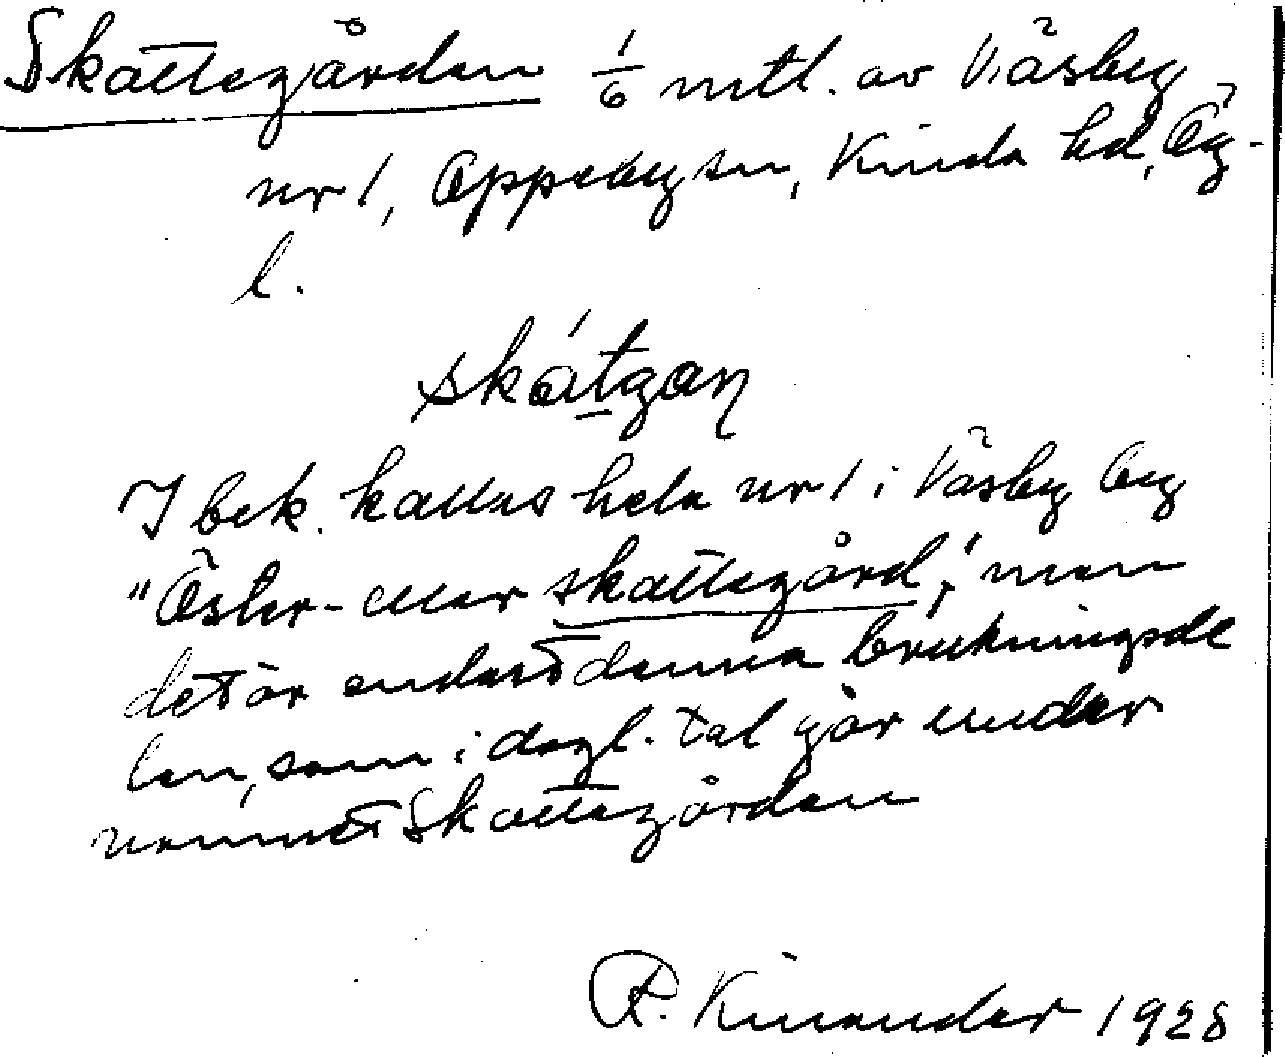 Skattegården 1/6 mtl. av Väsby
nr 1, Oppeby sn, Kinda hd, Ög-
l.
skátgaŋ
I bek. kallas hela nr 1 i Väsby by
"Öster- eller skattegård", men
det är endast denna brukningsde
len, som i dagl. tal går under
namnet Skattegården
R. Kinander 1928